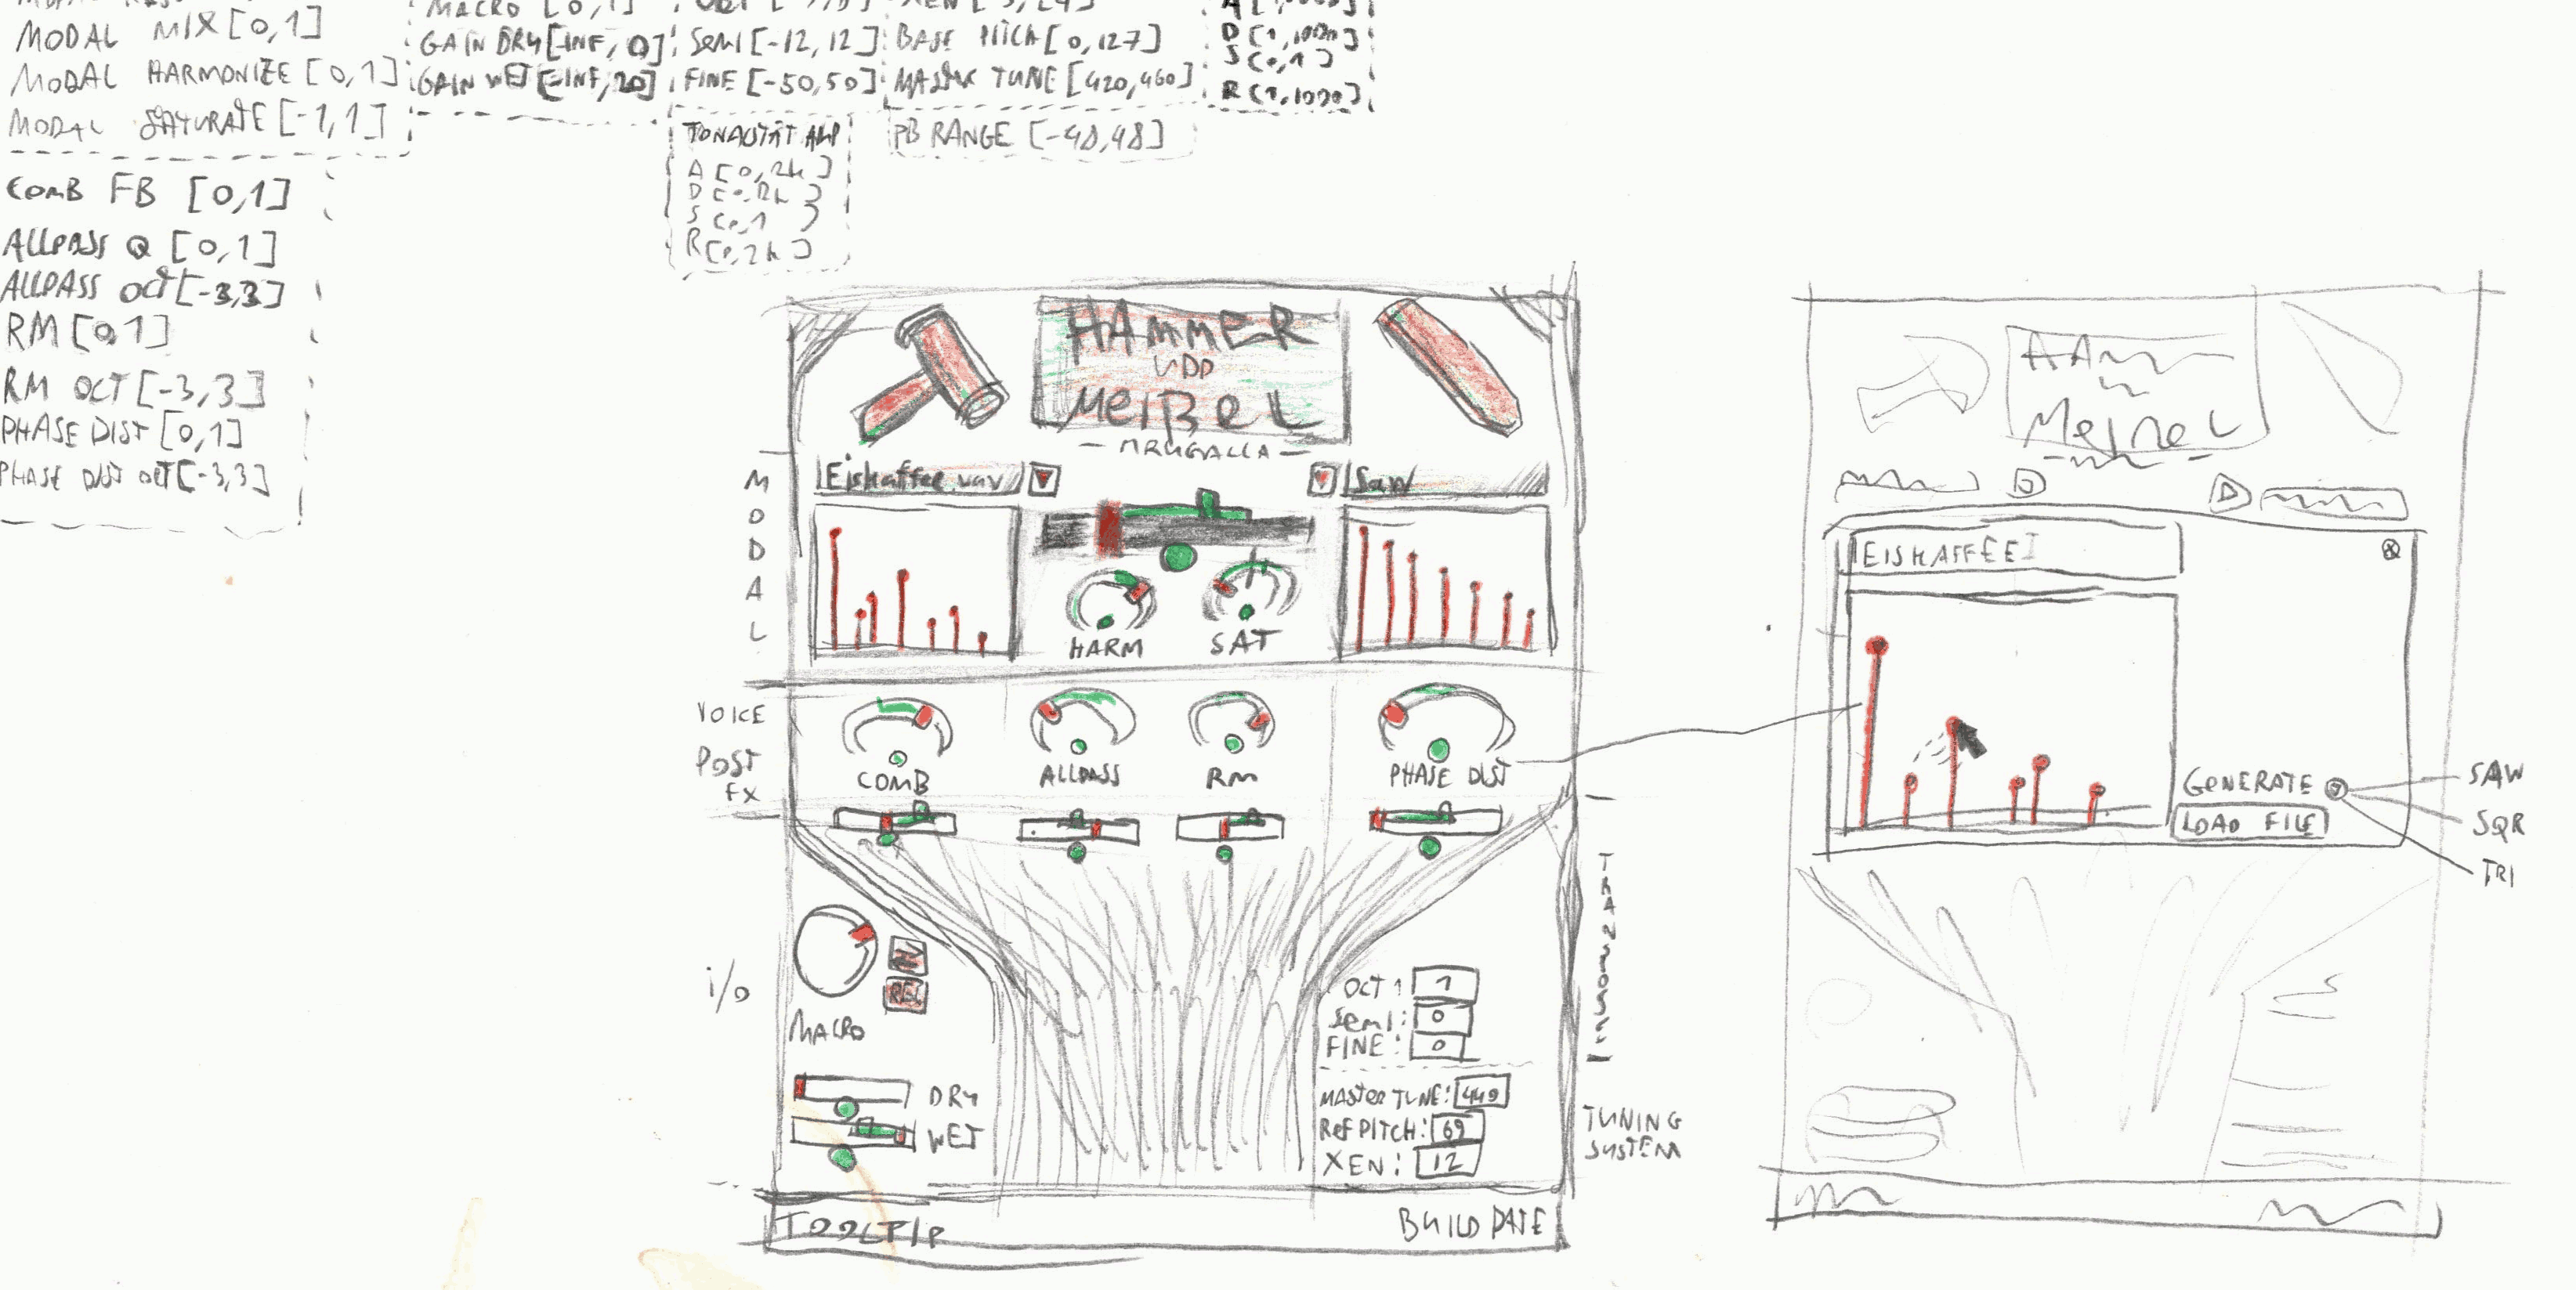 MODAL MIX [0,1]
MODAL HARMONIZE [0,1]
MODAL SATURATE [-1,1]
COMB FB [0,1]
ALLPASS Q [0,1]
ALLPASS OCT [-3,3]
RM [0,1]
RM OCT [-3,3]
PHASE DIST [0,1]
PHASE DIST OCT [-3,3]
MACRO [0,1]
GAIN DRY [-INF, 0]
GAIN WET [-INF, 20]
SEMI [-12, 12]
FINE [-50,50]
BASE PITCH [0,127]
MASTER TUNE [420,460]
PB RANGE [-48,48]
D [1,1000]
S [0,1]
R [1,1000]
A [0,2k]
S [0,1]
HAMMER
UDD
MEIßEL
- MRUGALLA -
MODAL
Eiskaffee.wav
Saw
HARM
SAT
VOICE
POST
FX
COMB
ALLPASS
RM
PHASE DIST
i/o
MACRO
REL
DRY
WET
OCT: 1
SEMI: 0
FINE: 0
MASTER TUNE: 440
REF PITCH: 69
XEN: 12
TUNING
SYSTEM
TOOLTIP
BUILD DATE
EISKAFFEE
GENERATE
LOAD FILE
SAW
SQR
TRI